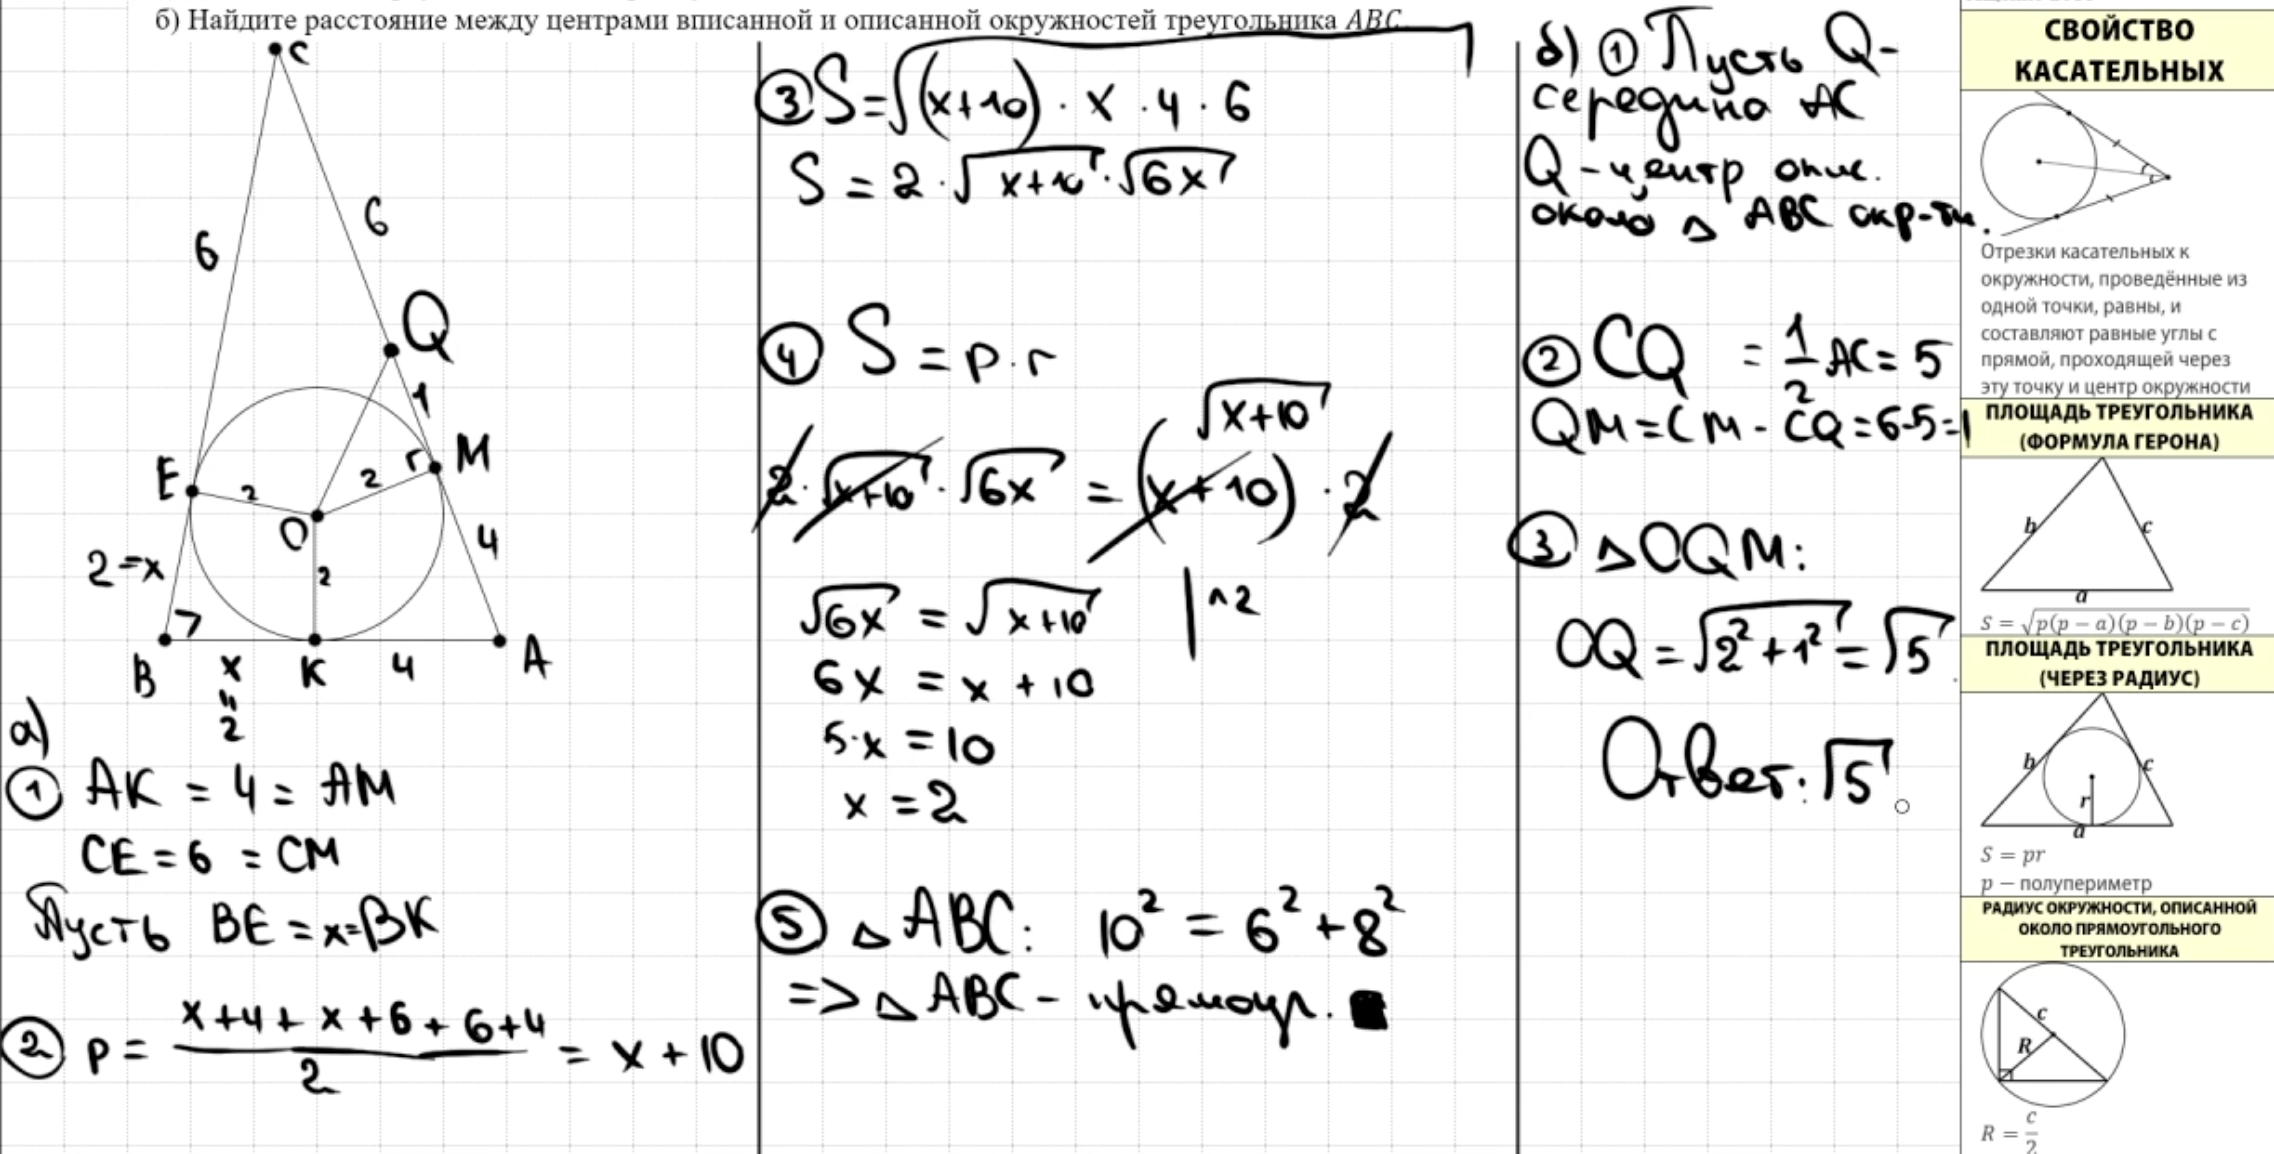 б) Найдите расстояние между центрами вписанной и описанной окружностей треугольника ABC.
C
6
6
Q
1
E
2
2
M
O
4
2=x
2
B
x
K
4
A
"
2
а)
① AK = 4 = AM
CE = 6 = CM
Пусть BE = x = BK
② p = (x+4+x+6+6+4)/2 = x + 10
③ S = √(x+10) · x · 4 · 6
S = 2 · √x+10 · √6x
④ S = p · r
√x+10
2 · √x+10 · √6x = (x+10) · 2
√6x = √x+10 | ^2
6x = x + 10
5·x = 10
x = 2
⑤ △ABC: 10² = 6² + 8²
=> △ABC - прямоуг.
б) ① Пусть Q -
середина AC
Q - центр опис.
около △ ABC окр-ти.
② CQ = 1/2 AC = 5
QM = CM - CQ = 6-5=1
③ △OQM:
OQ = √2²+1² = √5
Ответ: √5.
СВОЙСТВО
КАСАТЕЛЬНЫХ
Отрезки касательных к
окружности, проведённые из
одной точки, равны, и
составляют равные углы с
прямой, проходящей через
эту точку и центр окружности
ПЛОЩАДЬ ТРЕУГОЛЬНИКА
(ФОРМУЛА ГЕРОНА)
b
c
a
S = √p(p − a)(p − b)(p − c)
ПЛОЩАДЬ ТРЕУГОЛЬНИКА
(ЧЕРЕЗ РАДИУС)
b
c
r
a
S = pr
p − полупериметр
РАДИУС ОКРУЖНОСТИ, ОПИСАННОЙ
ОКОЛО ПРЯМОУГОЛЬНОГО
ТРЕУГОЛЬНИКА
c
R
R = c/2